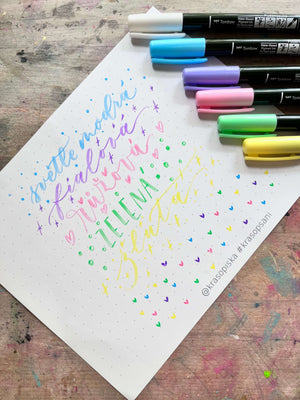 světle modrá
fialová
růžová
ZELENÁ
žlutá
@krasopiska #krasopsani
Tombow
Tombow
Tombow
Tombow